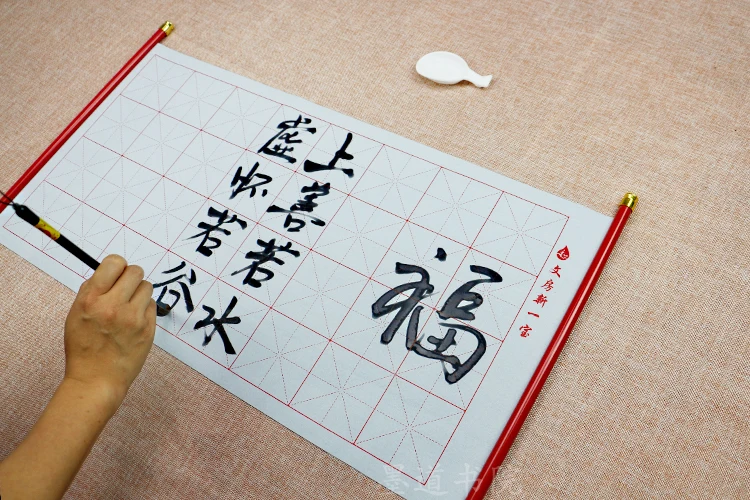 七
文房新一宝
福
上善若水
虚怀若谷
墨道书院